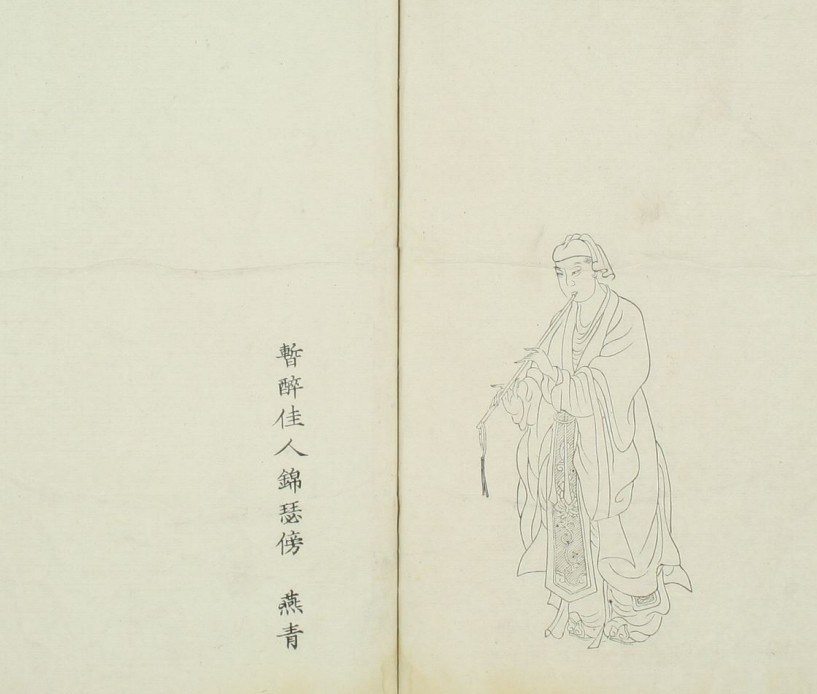 暫醉佳人錦瑟傍　燕青